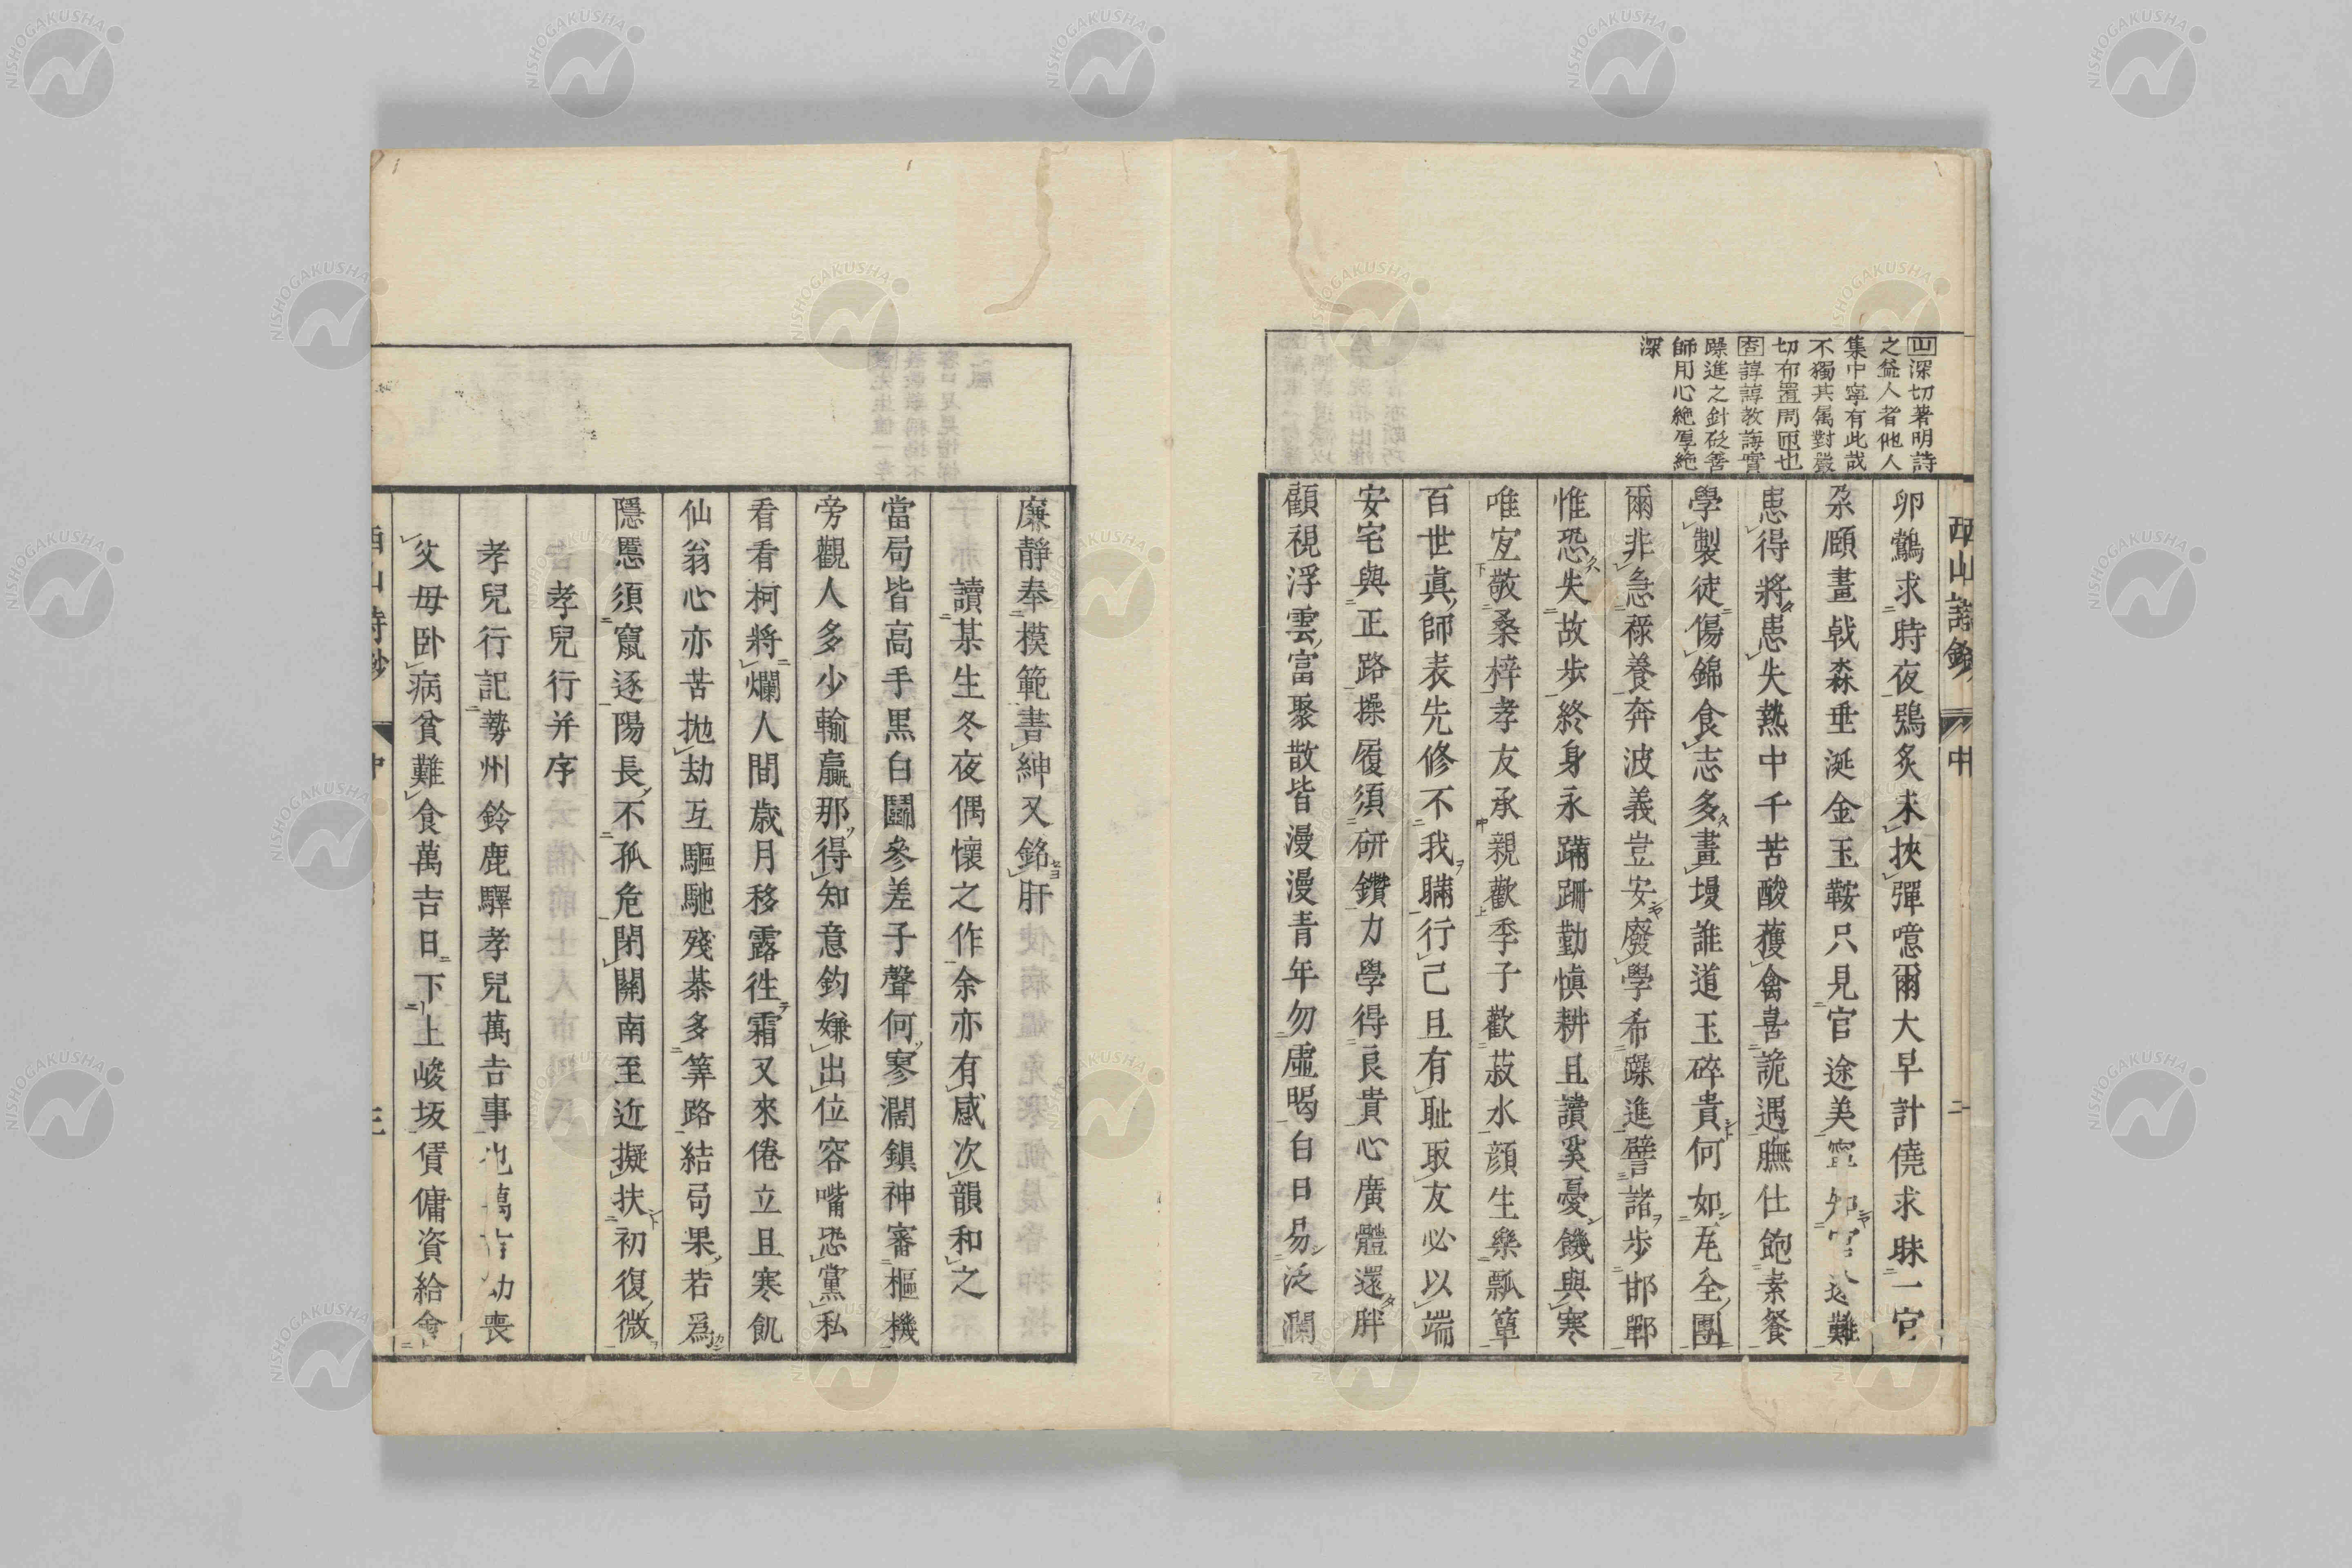 山深切著明詩
之益人者他人
集中寧有此哉
不獨其属對嚴
切布置周匝也
杏諄諄教誨實
躁進之針砭善
師用心絶厚絶
深
西山詩鈔 中 二
卵鷚求時夜鴞炙未挾彈噫爾大早計僥求昧一官
朶頤畫戟森垂涎金玉鞍只見官途美寧知官途難
患得將患失熱中千苦酸蒦禽喜詭遇膴仕飽素餐
學製徒傷錦食志多畫墁誰道玉碎貴何如瓦全團
爾非急祿養奔波義豈安廢學希躁進譬諸步邯鄲
惟恐失故步終身永蹣跚勤愼耕且讀奚憂饑與寒
唯宜敬桑梓孝友承親歡季子歡菽水顔生樂瓢簞
百世眞師表先修不我瞞行己且有耻取友必以端
安宅與正路操履須研鑽力學得良貴心廣體還胖
顧視浮雲富聚散皆漫漫青年勿虛暍白日易泛瀾
廉靜奉模範書紳又銘肝
讀某生冬夜偶懷之作余亦有感次韻和之
當局皆高手黒白鬪參差子聲何寥濶鎭神審樞機
旁觀人多少輸贏那得知意釣嫌出位容嘴恐黨私
看看柯將爛人間歳月移露徃霜又來倦立且寒飢
仙翁心亦苦抛劫互驅馳殘棊多筭路結局果若爲
隱慝須竄逐陽長不孤危閉關南至近擬扶初復微
孝兒行并序
孝兒行記勢州鈴鹿驛孝兒萬吉事也萬吉幼喪
父母卧病貧難食萬吉日下上峻坂賃傭資給會
西山詩鈔 中 三